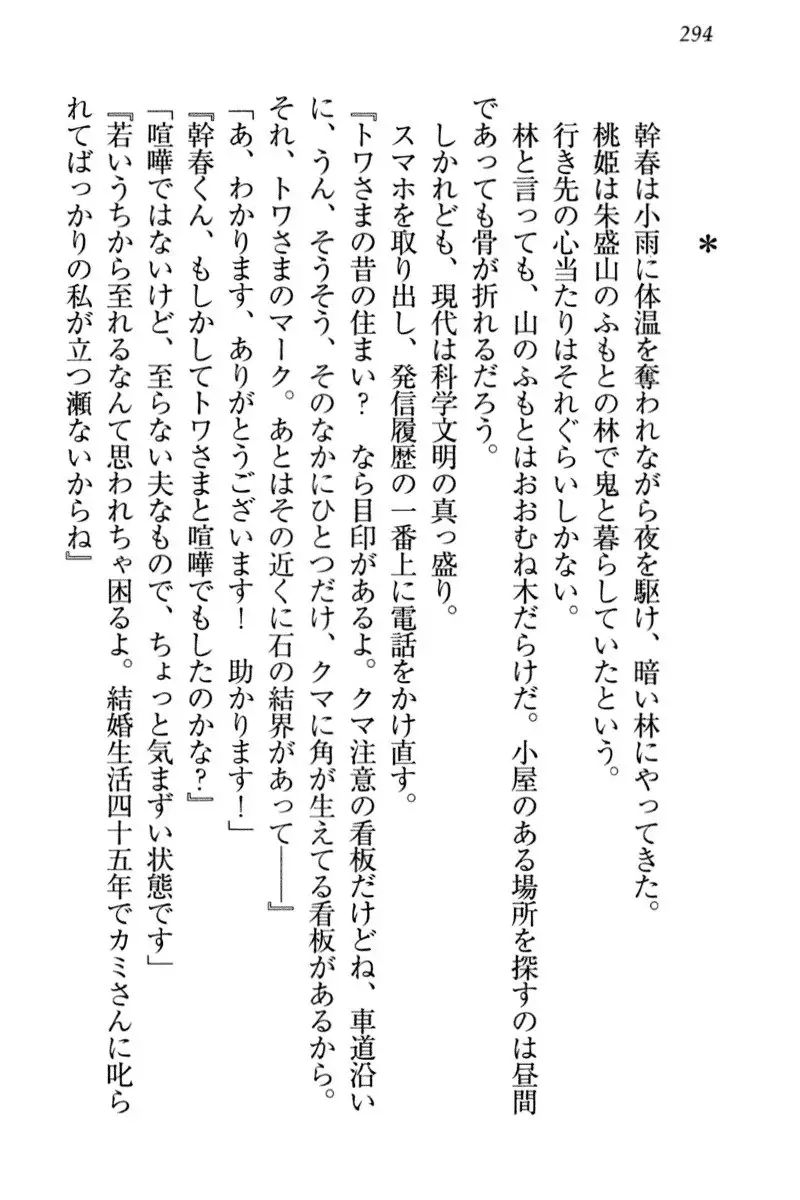 294
*
幹春は小雨に体温を奪われながら夜を駆け、暗い林にやってきた。
桃姫は朱盛山のふもとの林で鬼と暮らしていたという。
行き先の心当たりはそれぐらいしかない。
林と言っても、山のふもとはおおむね木だらけだ。小屋のある場所を探すのは昼間
であっても骨が折れるだろう。
しかれども、現代は科学文明の真っ盛り。
スマホを取り出し、発信履歴の一番上に電話をかけ直す。
『トワさまの昔の住まい？　なら目印があるよ。クマ注意の看板だけどね、車道沿い
に、うん、そうそう、そのなかにひとつだけ、クマに角が生えてる看板があるから。
それ、トワさまのマーク。あとはその近くに石の結界があって――』
「あ、わかります、ありがとうございます！　助かります！」
『幹春くん、もしかしてトワさまと喧嘩でもしたのかな？』
「喧嘩ではないけど、至らない夫なもので、ちょっと気まずい状態です」
『若いうちから至れるなんて思われちゃ困るよ。結婚生活四十五年でカミさんに叱ら
れてばっかりの私が立つ瀬ないからね』